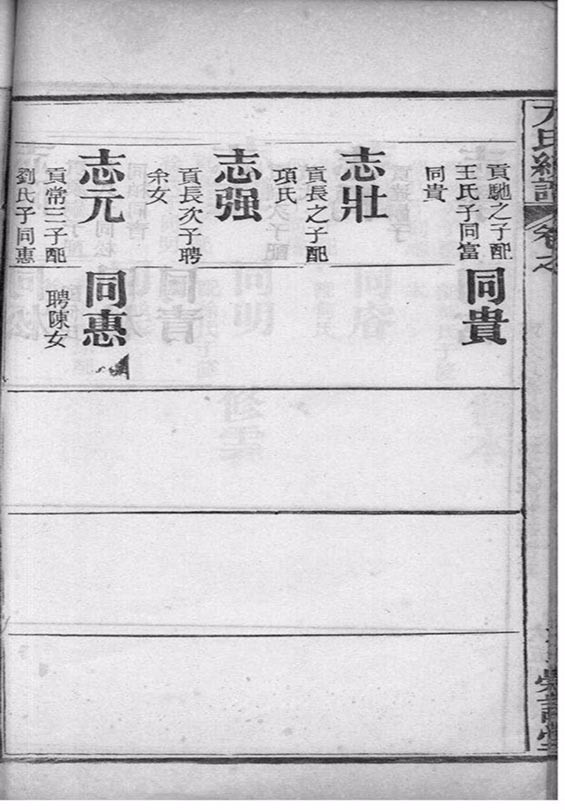 卷之
貢馳之子配
王氏子同富
同貴
志壯
貢長之子配
項氏
志强
貢長次子聘
余女
志元
貢常三子配
劉氏子同惠
同貴
同惠
聘陳女